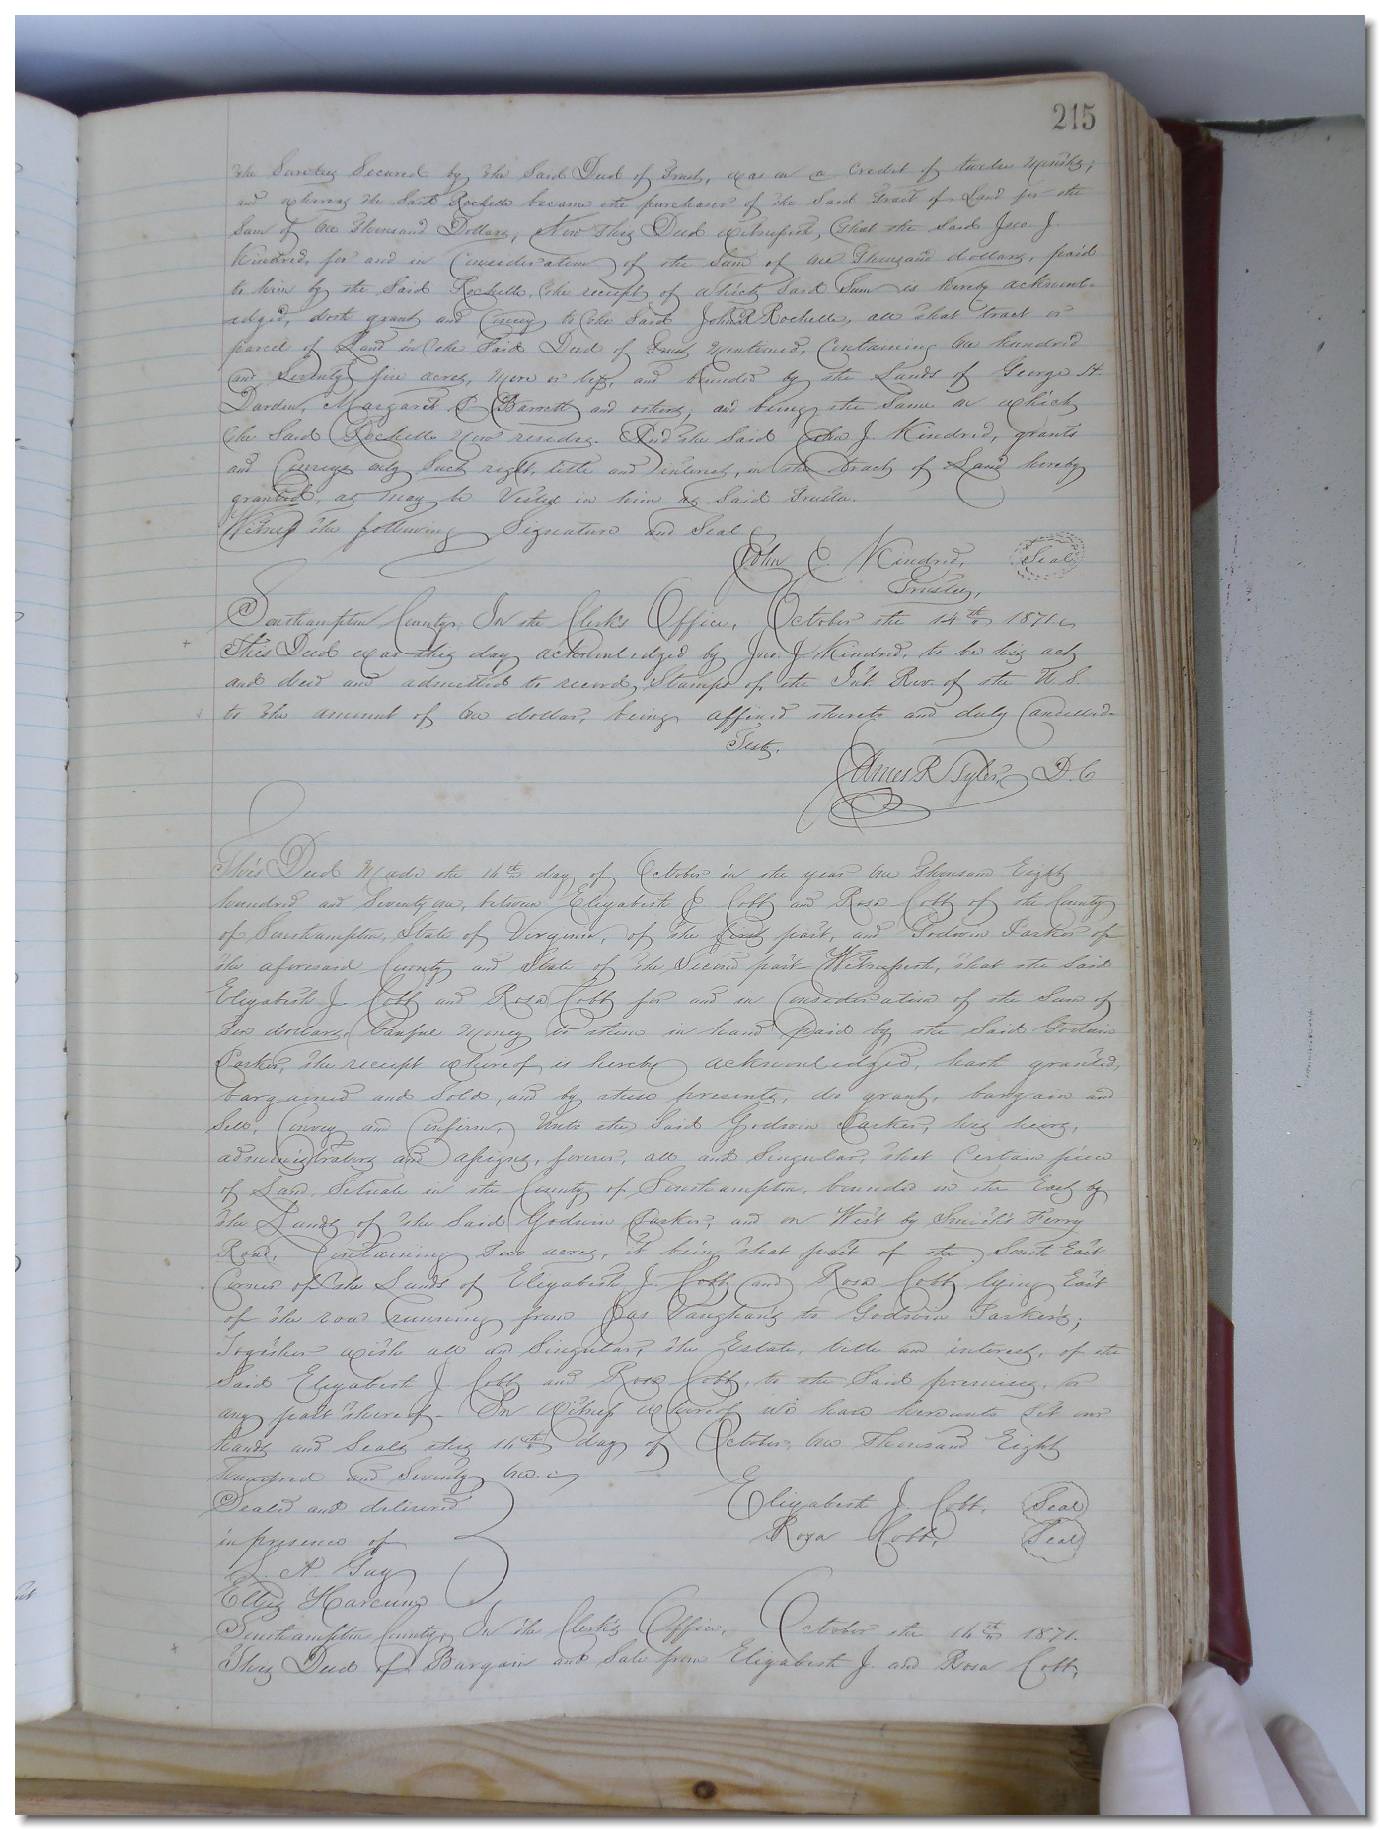 215
the Sureties Secured by the Said Deed of Trust, was on a Credit of twelve Months;
and whereas the Said Rochelle became the purchaser of the Said Tract of Land for the
Sum of One Thousand Dollars, Now This Deed Witnesseth, That the Said Jno. J.
Kindred, for and in Consideration of the Sum of One Thousand dollars, paid
to him by the Said Rochelle, the receipt of which Said Sum is hereby acknowl-
edged, doth grant and Convey to the Said John R Rochelle, all that tract or
parcel of Land in the Said Deed of Trust Mentioned, Containing One hundred
and Seventy five acres, More or less, and bounded by the Lands of George H.
Darden, Margaret P. Barrett and others, and being the Same on which
the Said Rochelle Now resides. And the Said Jno J. Kindred, grants
and Conveys only Such right, title and interest, in the tract of Land hereby
granted, as may be Vested in him as Said Trustee.
Witness the following Signature and Seal
John J. Kindred, Seal
Trustee,
Southampton County, In the Clerk's Office, October the 14th 1871.
This Deed was this day acknowledged by Jno. J. Kindred, to be his act
and deed and admitted to record, Stamps of the Int. Rev. of the U. S.
to the amount of One dollar, being affixed thereto and duly Cancelled.
Teste.
James R Tyler, D. C
This Deed Made the 16th day of October in the year One Thousand Eight
hundred and Seventy one, between Elizabeth J Cobb and Rosa Cobb of the County
of Southampton, State of Virginia, of the first part, and Godwin Parker of
the aforesaid County and State of the Second part Witnesseth, that the Said
Elizabeth J. Cobb and Rosa Cobb for and in Consideration of the Sum of
ten dollars, lawful Money to them in hand paid by the Said Godwin
Parker, the receipt whereof is hereby acknowledged, hath granted,
bargained and Sold, and by these presents, do grant, bargain and
Sell, Convey and Confirm, Unto the Said Godwin Parker, his heirs,
administrators and assigns, forever, all and Singular, that Certain piece
of Land, Situate in the County of Southampton, bounded on the East by
the Lands of the Said Godwin Parker, and on West by Smith's Ferry
Road, Containing Two acres, it being that part of the South East
Corner of the Lands of Elizabeth J. Cobb and Rosa Cobb lying East
of the road running from Jas Vaughan's to Godwin Parker's;
Together with all and Singular, the Estate, title and interest, of the
Said Elizabeth J Cobb and Rosa Cobb, to the Said premises, or
any part thereof. In Witness Whereof we have hereunto Set our
hands and Seals this 16th day of October, One Thousand Eight
hundred and Seventy One.
Sealed and delivered Elizabeth J. Cobb, Seal
in presence of Rosa Cobb, Seal
A. Guy
Harcum
Southampton County, In the Clerk's Office, October the 16th 1871.
This Deed of Bargain and Sale from Elizabeth J. and Rosa Cobb,